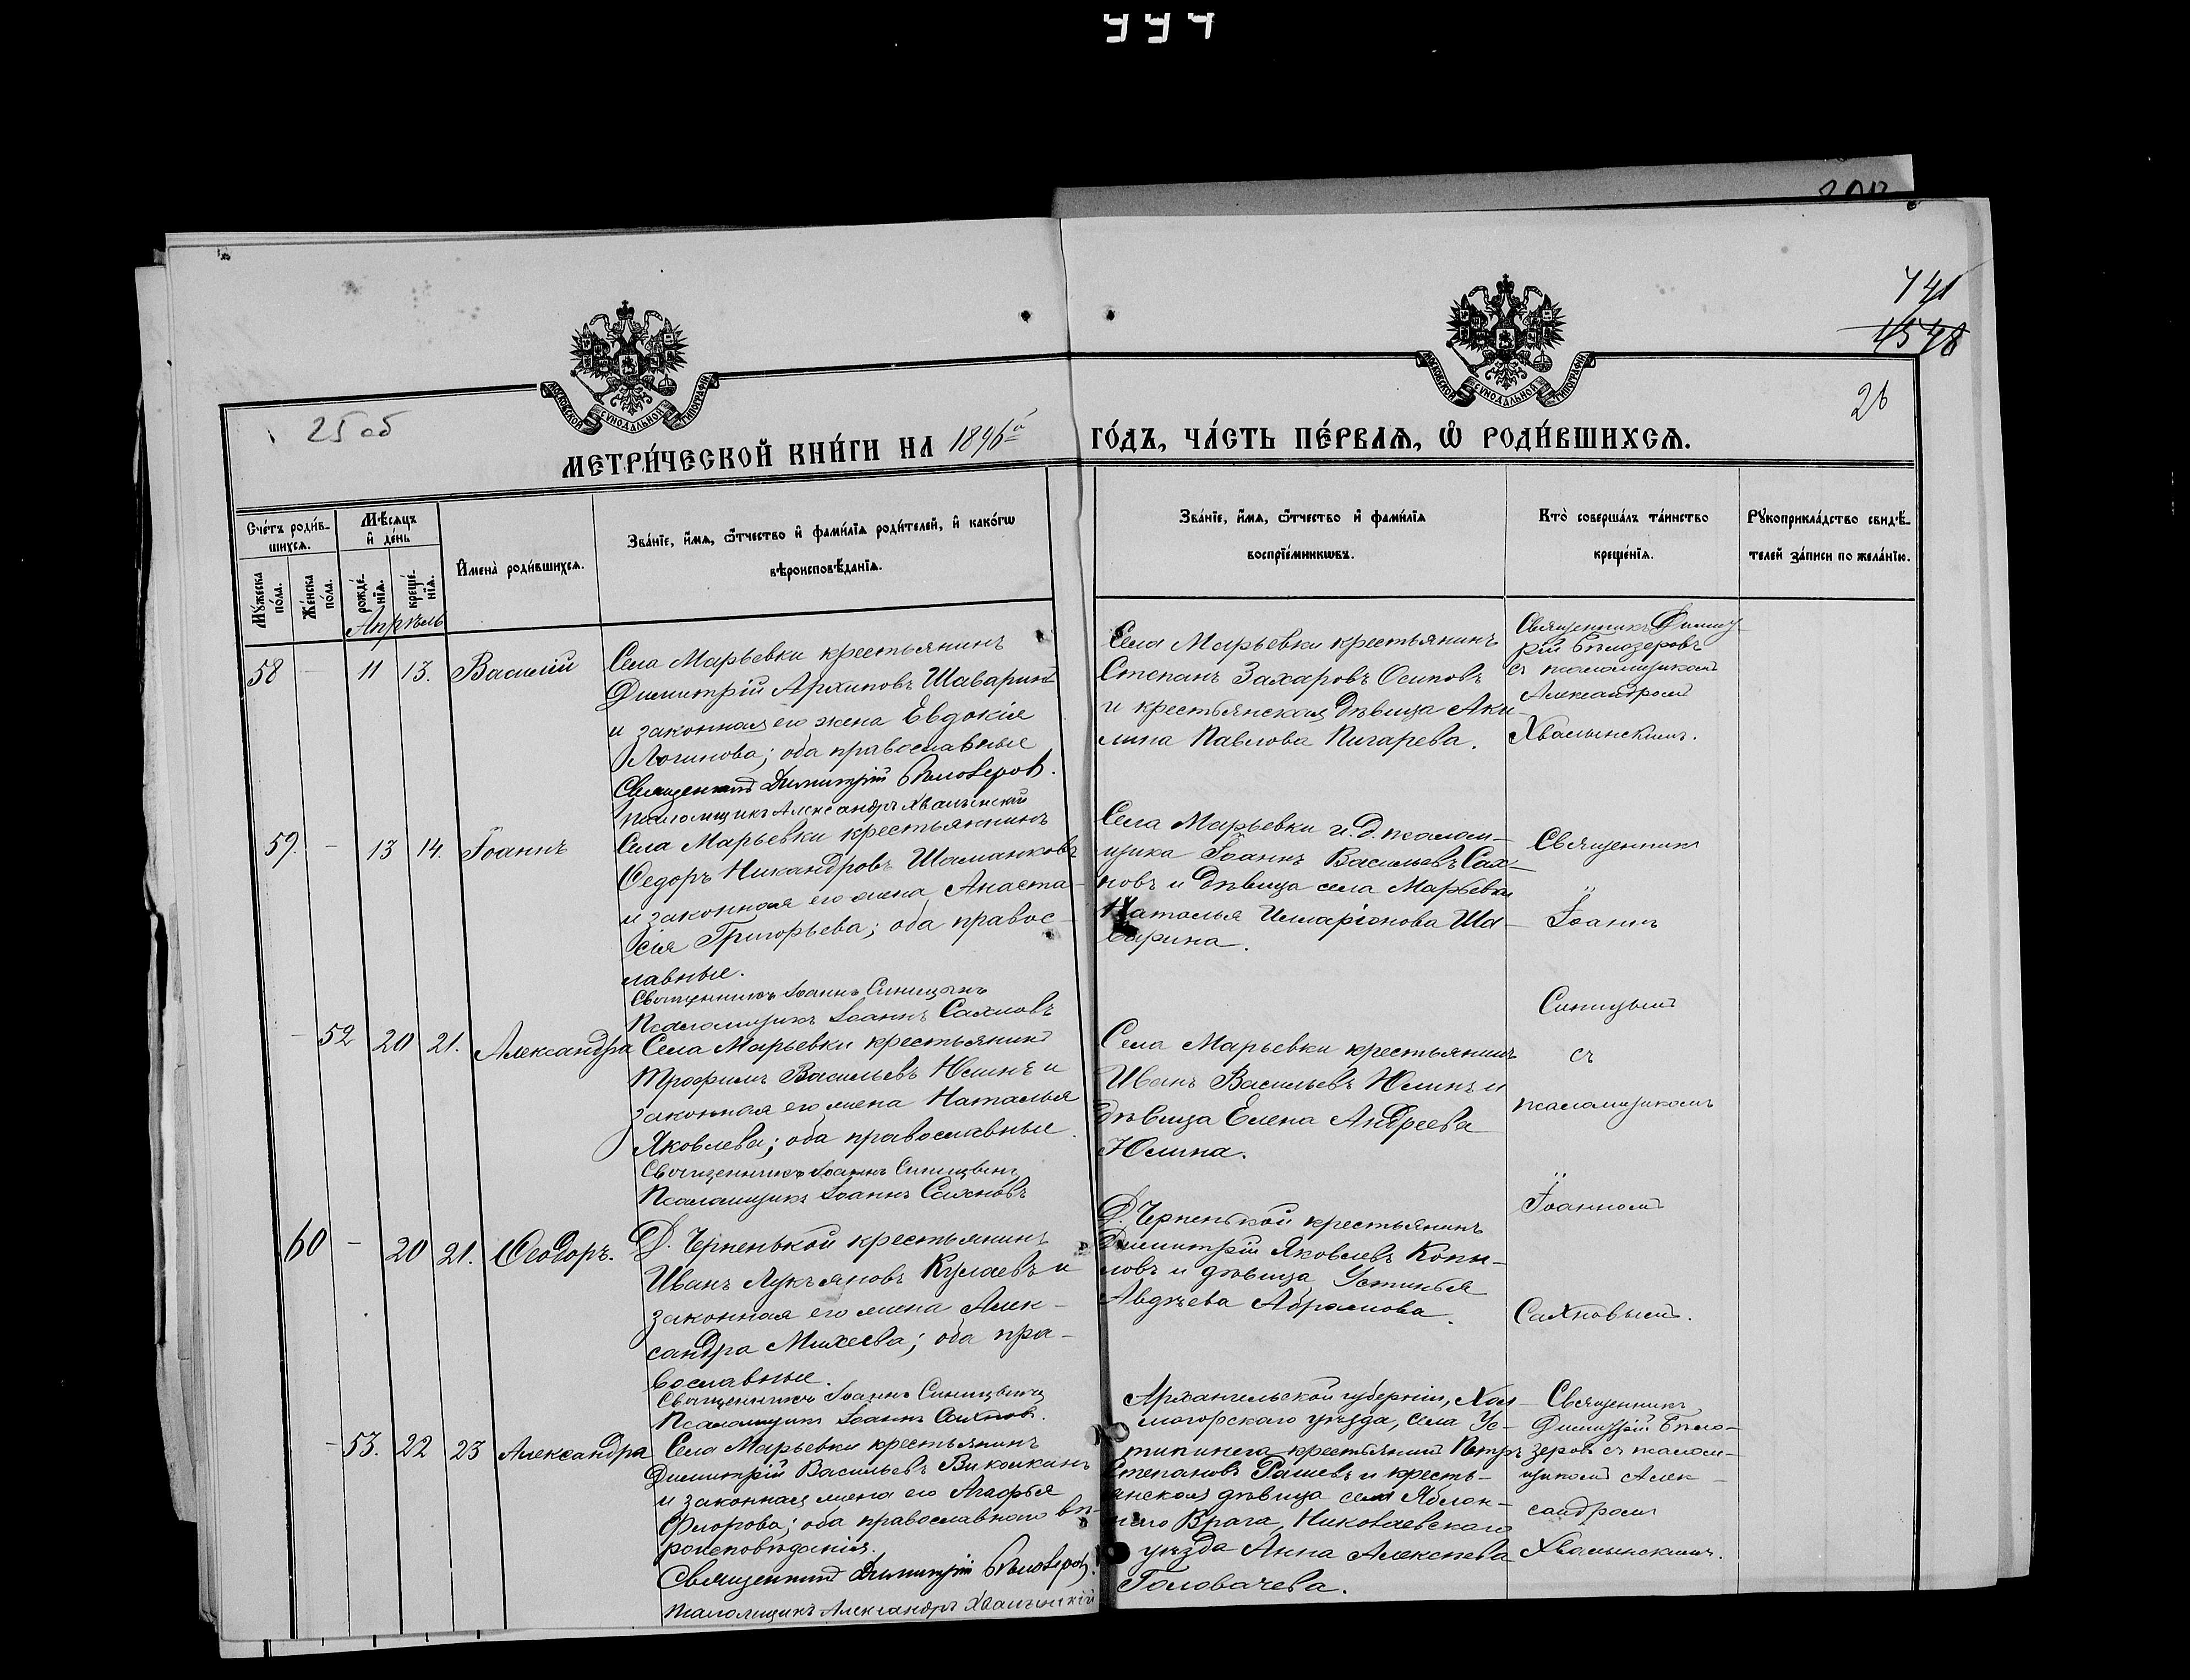 994
741
4548
26
25 об
МОСКОВСКОЙ СУНОДАЛЬНОЙ ТИПОГРАФІИ
МОСКОВСКОЙ СУНОДАЛЬНОЙ ТИПОГРАФІИ
МЕТРИ́ЧЕСКОЙ КНИ́ГИ НА 1896й ГО́ДЪ, ЧА́СТЬ ПЕ́РВАЯ, Ѡ РОДИ́ВШИХСЯ.
Сче́тъ роди́в-
шихсѧ.
Мѣ́сѧцъ
и҆ де́нь
Мꙋ́жеска
по́ла.
Же́нска
по́ла.
рожде́-
нїѧ.
креще́-
нїѧ.
И҆мена̀ роди́вшихсѧ.
Зва́нїе, и҆́мѧ, ѻ҆́тчество и҆ фами́лїѧ роди́телей, и҆ како́гѡ
вѣроисповѣ́данїѧ.
Зва́нїе, и҆́мѧ, ѻ҆́тчество и҆ фами́лїѧ
воспрїе́мникѡвъ.
Кто̀ соверша́лъ та́инство
креще́нїѧ.
Рꙋкоприкла́дство свидѣ́-
телей за́писи по жела́нїю.
Апрѣль
58 — 11 13. Василій
Села Марьевки крестьянинъ
Димитрій Архиповъ Шаваринъ
и законная его жена Евдокія
Логинова; оба православные
Священникъ Димитрій Бѣлозеровъ.
Псаломщикъ Александръ Хвалынскій
Села Марьевки крестьянинъ
Степанъ Захаровъ Осиповъ
и крестьянская дѣвица Аки-
лина Павлова Пигарева.
Священникъ Димит-
рій Бѣлозеровъ
съ псаломщикомъ
Александромъ
Хвалынскимъ.
59. — 13 14. Іоаннъ
Села Марьевки крестьянинъ
Ѳедоръ Никандровъ Шаманковъ
и законная его жена Анаста-
сія Григорьева; оба правос-
лавные.
Священникъ Іоаннъ Синицынъ
Псаломщикъ Іоаннъ Сахновъ
Села Марьевки и. д. псалом-
щика Іоаннъ Васильевъ Сах-
новъ и дѣвица села Марьевки
Наталья Илларіонова Ша-
варина.
Священникъ
Іоаннъ
Синицынъ
съ
псаломщикомъ
Іоанномъ
Сахновымъ.
— 52 20 21. Александра
Села Марьевки крестьянинъ
Трофимъ Васильевъ Юлинъ и
законная его жена Наталья
Яковлева; оба православные.
Священникъ Іоаннъ Синицынъ
Псаломщикъ Іоаннъ Сахновъ
Села Марьевки крестьянинъ
Иванъ Васильевъ Юлинъ и
дѣвица Елена Андреева
Юлина.
60 — 20 21. Ѳеодоръ.
Д. Черненькой крестьянинъ
Иванъ Лукьяновъ Кулаевъ и
законная его жена Алек-
сандра Михеева; оба пра-
вославные.
Священникъ Іоаннъ Синицынъ
Псаломщикъ Іоаннъ Сахновъ.
Д. Черненькой крестьянинъ
Димитрій Яковлевъ Копы-
ловъ и дѣвица Устинья
Авдѣева Абрамова.
— 53. 22 23 Александра
Села Марьевки крестьянинъ
Димитрій Васильевъ
и законная жена его Агафья
Флорова; оба православнаго вѣ-
роисповѣданія.
Священникъ Димитрій Бѣлозеровъ.
Псаломщикъ Александръ Хвалынскій
Архангельской губерніи, Хол-
могорскаго уѣзда, села Ус-
тьпинега крестьянинъ Петръ
Степановъ и кресть-
янская дѣвица села Яблон-
наго Врага, Николаевскаго
уѣзда Анна Алексѣева
Головачева.
Священникъ
Димитрій Бѣло-
зеровъ съ псалом-
щикомъ Алек-
сандромъ
Хвалынскимъ.